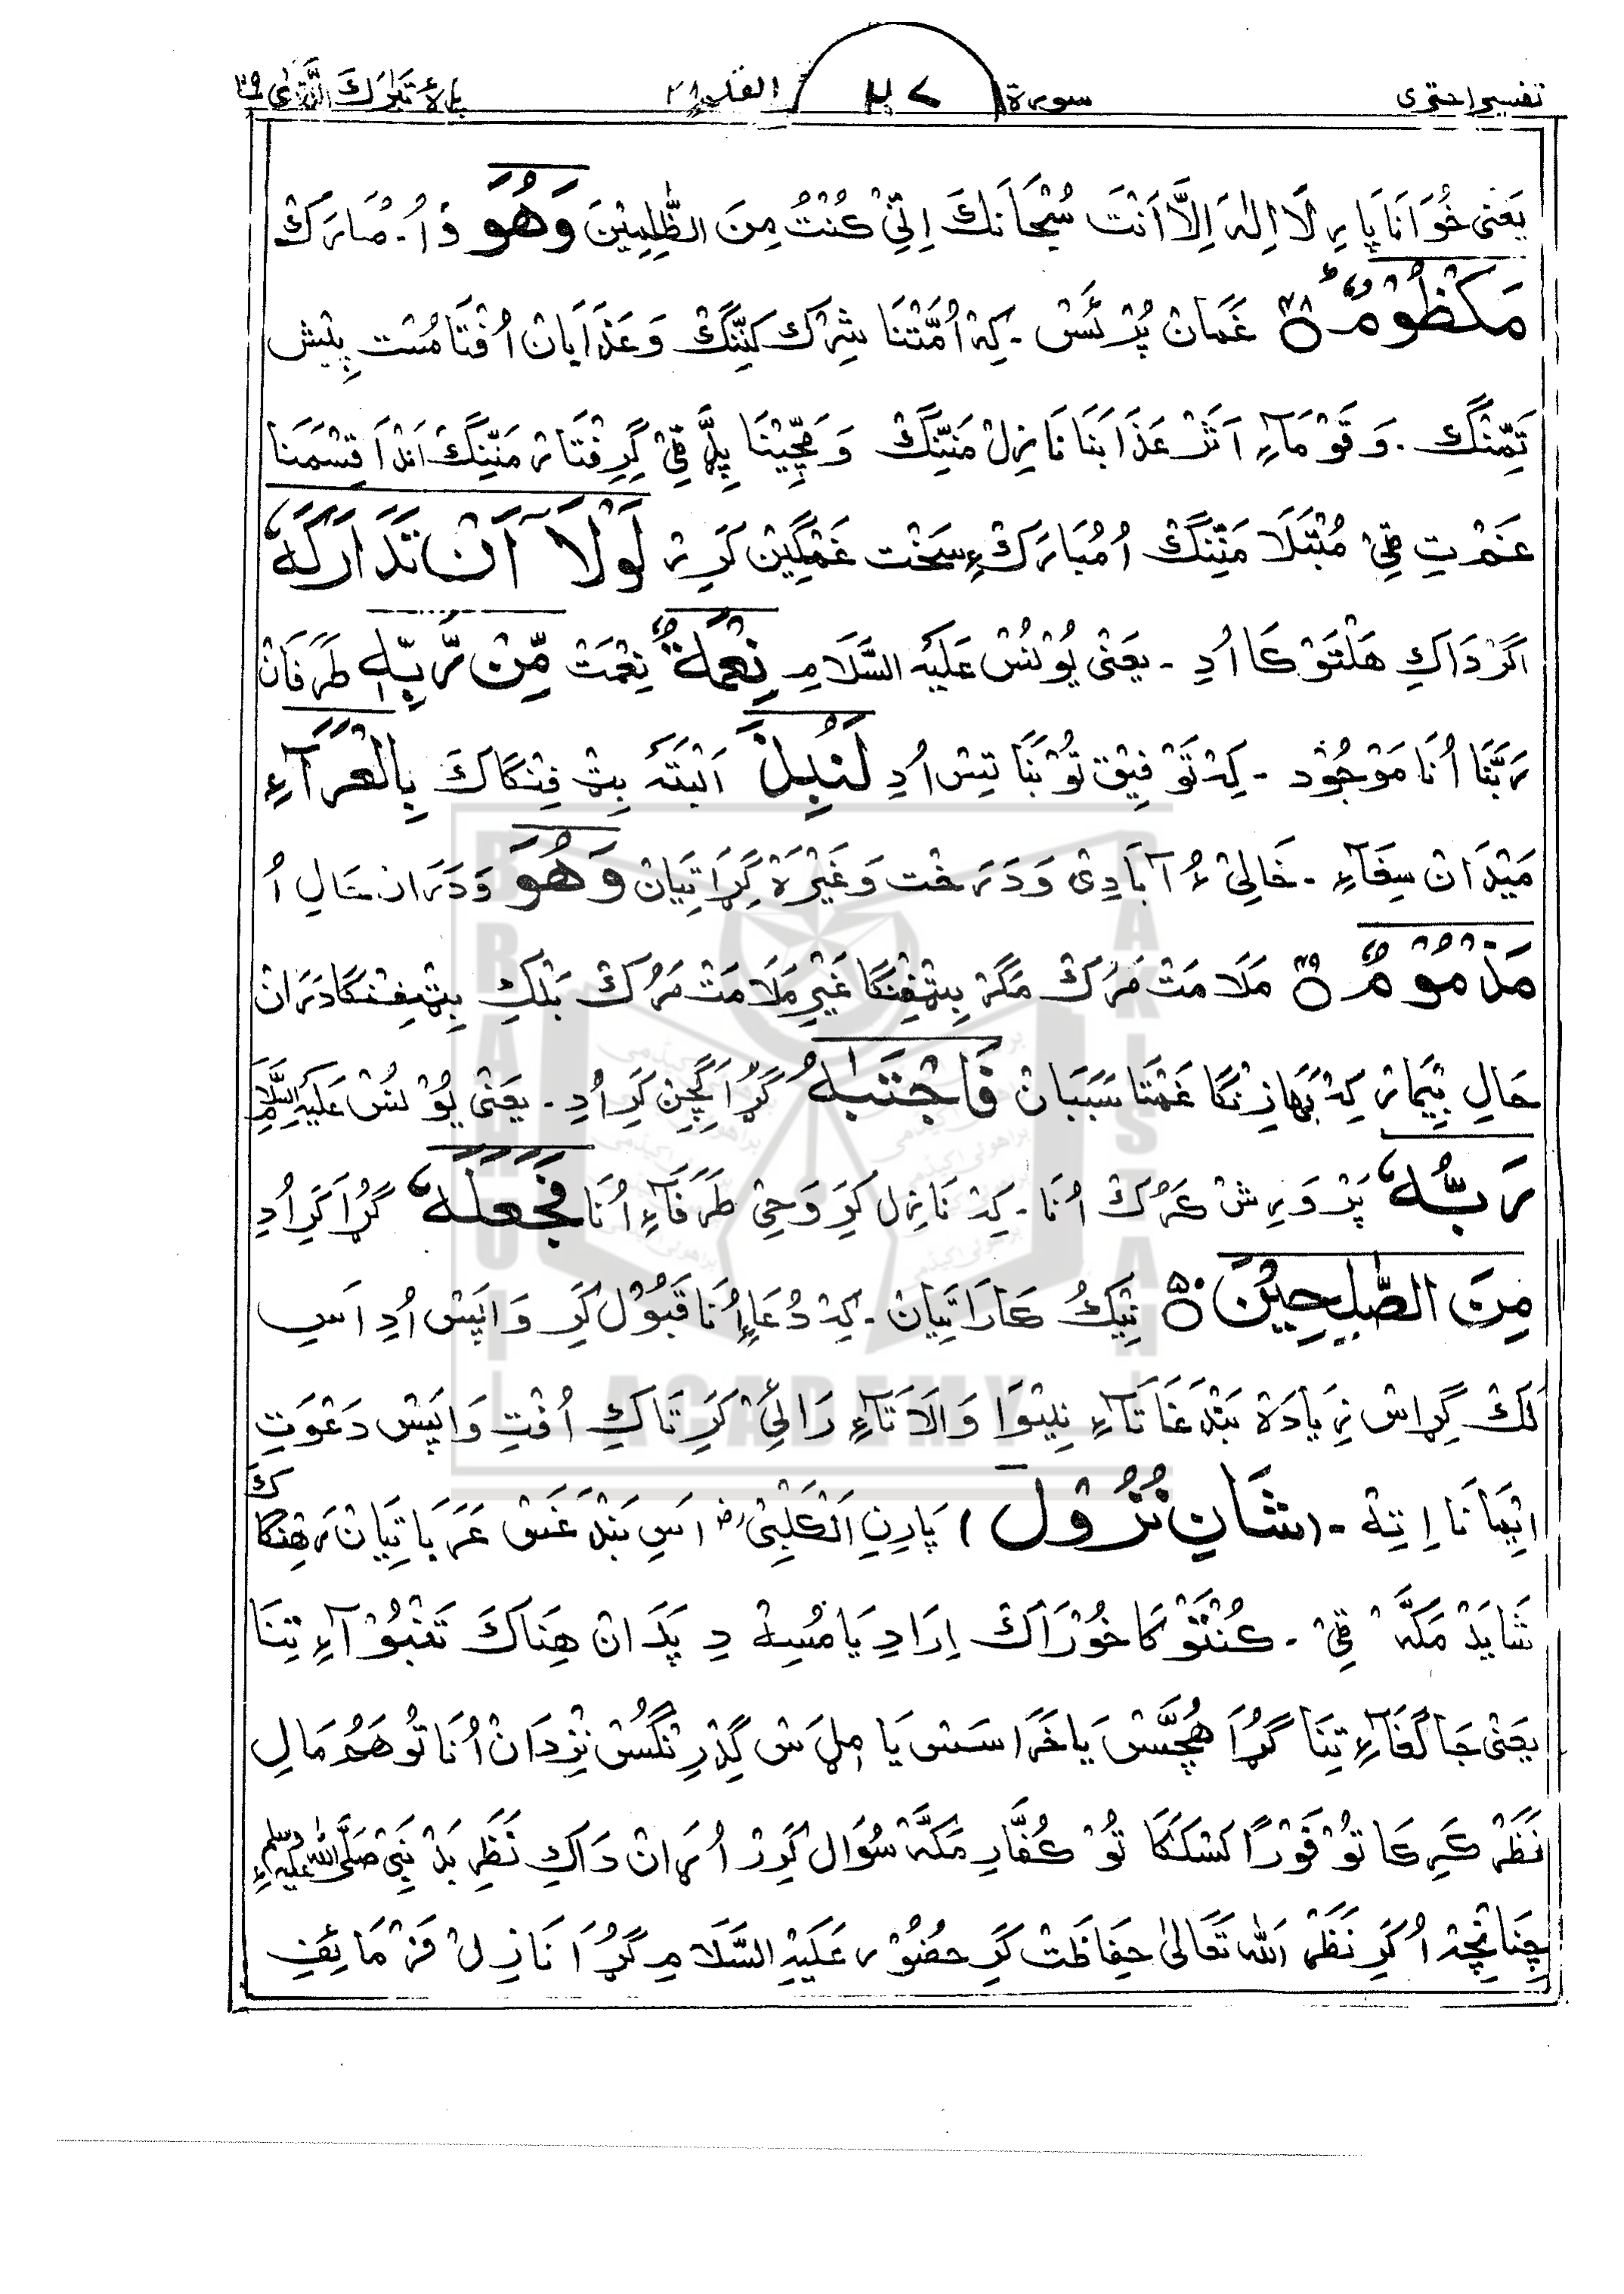 تفسیر اختری سورة ٤٧ القلم ٦٨ پارۀ تبٰرك الَّذی ٢٩
یَعنی خُوَانَا پَا رِ لَا اِلٰهَ اِلَّا اَنْتَ سُبْحَانَكَ اِنِّیْ كُنْتُ مِنَ الظّٰلِمِیْنَ وَهُوَ وَ اُ۔ مُبَارَكْ
مَكْظُوْمٌ ۴۸ غَمَان پُرْ ئَسْ ۔ كِهْ اُمَّتْنَا شِرْك كَنِّنْگْ وَ عَذَابَانْ اُفْتَا مُسْت پِیْش
تَمِّنْگ ۔ وَ قَوْمَآءِ اَثَرْ عَذَابَنَا نَازِلْ مَنِّنْگْ وَ مَچِّیْنَا پِڈَّ ٹِیْ گِرِفْتَارْ مَنِّنْگْ اَنْدَا قِسْمَنَا
غَمْ تِ ٹِیْ مُبْتَلَا مَنِّنْگْ اُ مُبَارَكْ ءِ سَخْت غَمْگِیْن كَرِرْ لَوْلَآ اَنْ تَدَارَكَهٗ
اَگَرْ دَاكِ هَلْتَوْ كَا اُدِ ۔ یَعنی یُوْنُسْ عَلَیْهِ السَّلَامِ نِعْمَةٌ نِعْمَتْ مِّنْ رَّبِّهٖ طَرَفَانْ
رَبَّنَا اُنَا مَوْجُوْد ۔ كِهْ تَوْفِیْق تَوْبَنَا تِیْس اُدِ لَنُبِذَ اَلْبَتَّهْ بِٹْ فِنْگَاكَ بِالْعَرَآءِ
مَیْدَان سِفَآءِ ۔ خَالِیْ ءُ آبَادِیْ وَ دَرَخْت وَغَیْرَهْ گِڑَاتِیَانْ وَهُوَ وَ دَرَان حَالِ اُ
مَذْمُوْمٌ ۴۹ مَلَامَتْ مَرُكْ مَگَرْ بِٹْفِنْگَا غَیْرِ مَلَامَتْ مَرُكْ بَلْكِ بِٹْفِنْگَا دَرَانْ
حَالِ بِیْمَارْ كِهْ بَهَازِ نْگَا غَمْتَا سَبَبَانْ فَاجْتَبٰهُ گُڑَا گِچِنْ كَرِ اُدِ ۔ یَعْنٰی یُوْنُسْ عَلَیْهِ السَّلَامِ
رَبُّهٗ پَرْوَرِشْ كَرُكْ اُنَا ۔ كِهْ نَازِل كَرِ وَحِیْ طَرَفَآءِ اُنَا فَجَعَلَهٗ گُڑَا كَرِ اُدِ
مِنَ الصّٰلِحِیْنَ ۵۰ نِیْكُ كَارَاتِیَانْ ۔ كِهْ دُعَاءِ اُنَا قَبُوْل كَرِ وَاپَسْ اُدِ اَسِ
لَكْ گِڑَاس زِیَادَهْ بَنْدَغَاتَآءِ نِیْنَوَا وَالَاتَآءِ رَالِیْ كَرِ تَاكِ اُفْتِ وَاپَسْ دَعْوَتِ
اِیْمَانَا اِتِهْ ۔ (شَانِ نُزُوْل) پَارِنِ اَلْكَلْبِیْ رض اَسِ بَنْدَغَس عَرَبَاتِیَانْ رَهِنْگَا كَ
شَایَدْ مَكَّهْ ٹِیْ ۔ كُنْتَوْ كَا خُوْرَاكْ اِرَادِ یَا مُسِهْ دِ پَدَانْ هِنَاكَ تَمْبُوْ آءِ تِنَا
یَعْنٰی جَالَغَآءِ تِنَا گُڑَا هُچَّسْ یَا خَرَاسَس یَا مِلِ ئَس گِدْرِنْگَسْ نِزْدَانْ اُنَا تُو هَمُو مَالِ
نَظَرْ كَرِ كَا تُوْ فَوْرًا كَسْكَكَا تُوْ كُفَّارِ مَكَّهْ سُوَال كَرِرْ اُرَانْ دَاكِ نَظَرِ بَدْ نَبِیْ صَلَّی اللّٰهُ عَلَیْهِ وسلم ءِ
چِنَانْچِهْ اُ كَرِ نَظَرْ اَللّٰهُ تَعَالٰی حِفَاظَتْ كَرِ حضُوْر عَلَیْهِ السَّلَامِ گُڑَا نَازِلْ فَرْمَائِفِ
BRAHUI ACADEMY PAKISTAN